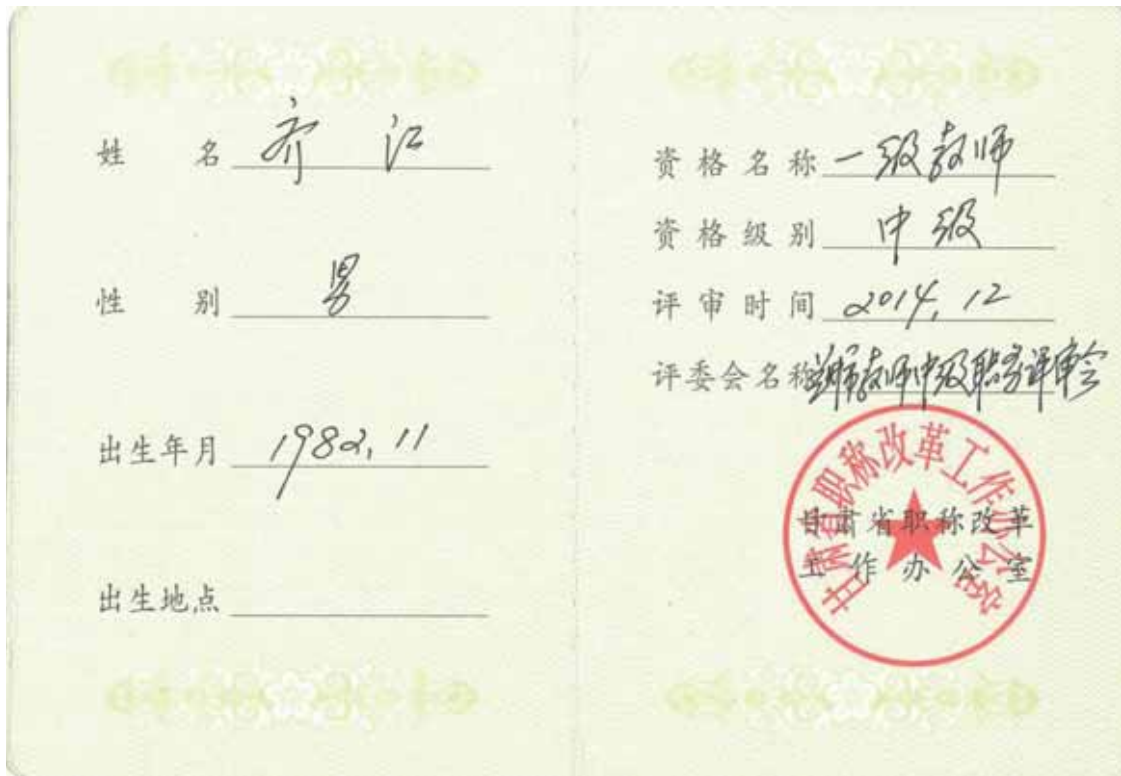 姓 名 齐 江
性 别 男
出生年月 1982.11
出生地点
资格名称 一级教师
资格级别 中级
评审时间 2014.12
评委会名称 兰州市教师中级职务评审会
甘肃省职称改革工作办公室
甘肃省职称改革
工作办公室